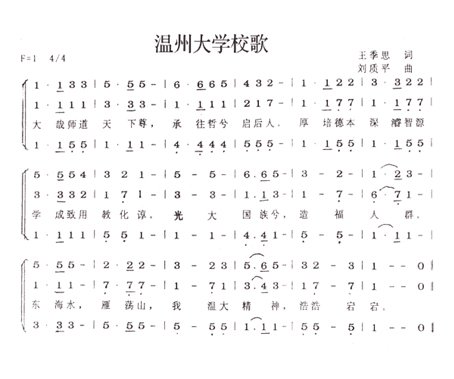 温州大学校歌
F=1 4/4
王季思 词
刘质平 曲
1· 1 3 3 | 5· 5 5 - | 6· 6 6 5 | 4 3 2 - | 1· 1 2 2 | 3· 3 2 2 |
1· 1 1 1 | 3· 3 3 - | 4· 4 4 3 | 2 1 7 - | 1· 1 7 7 | 1· 1 7 7 |
大哉师道 天下尊，承往哲兮 启后人。厚培德本 深濬智源
1· 1 5 5 | 1· 1 1 - | 4· 4 4 4 | 5 5 5 - | 1· 1 5 5 | 1· 1 5 5 |
5 - 5 5 4 | 3 5 3 - | 5 - 5 - | 6· 6 5 - | 5 - 3 - | 1· 2 3 - |
3 - 3 3 2 | 1 7 1 - | 3 - 3 - | 1· 1 3 - | 3 - 1 - | 6· 7 1 - |
学 成致用 教化谆，光 大 国族兮，造 福 人 群。
1 - 1 1 1 | 5 5 1 - | 1 - 1 - | 4· 4 1 - | 5 - 5 - | 1· 1 1 - |
5 - 5 5 - | 2 - 2 2 - | 3 - 2 3 | 5· 6 5 - | 3 2 - 3 | 1 - - 0 ‖
3 - 3 3 - | 7 - 7 7 - | 1 - 7 1 | 3· 4 3 - | 1 7 - 7 | 1 - - 0 ‖
东 海水，雁 荡山，我 温大 精 神，浩浩 宕宕。
3 - 3 3 - | 5 - 5 5 - | 1 - 5 5 | 1· 1 1 - | 5 5 - 5 | 1 - - 0 ‖